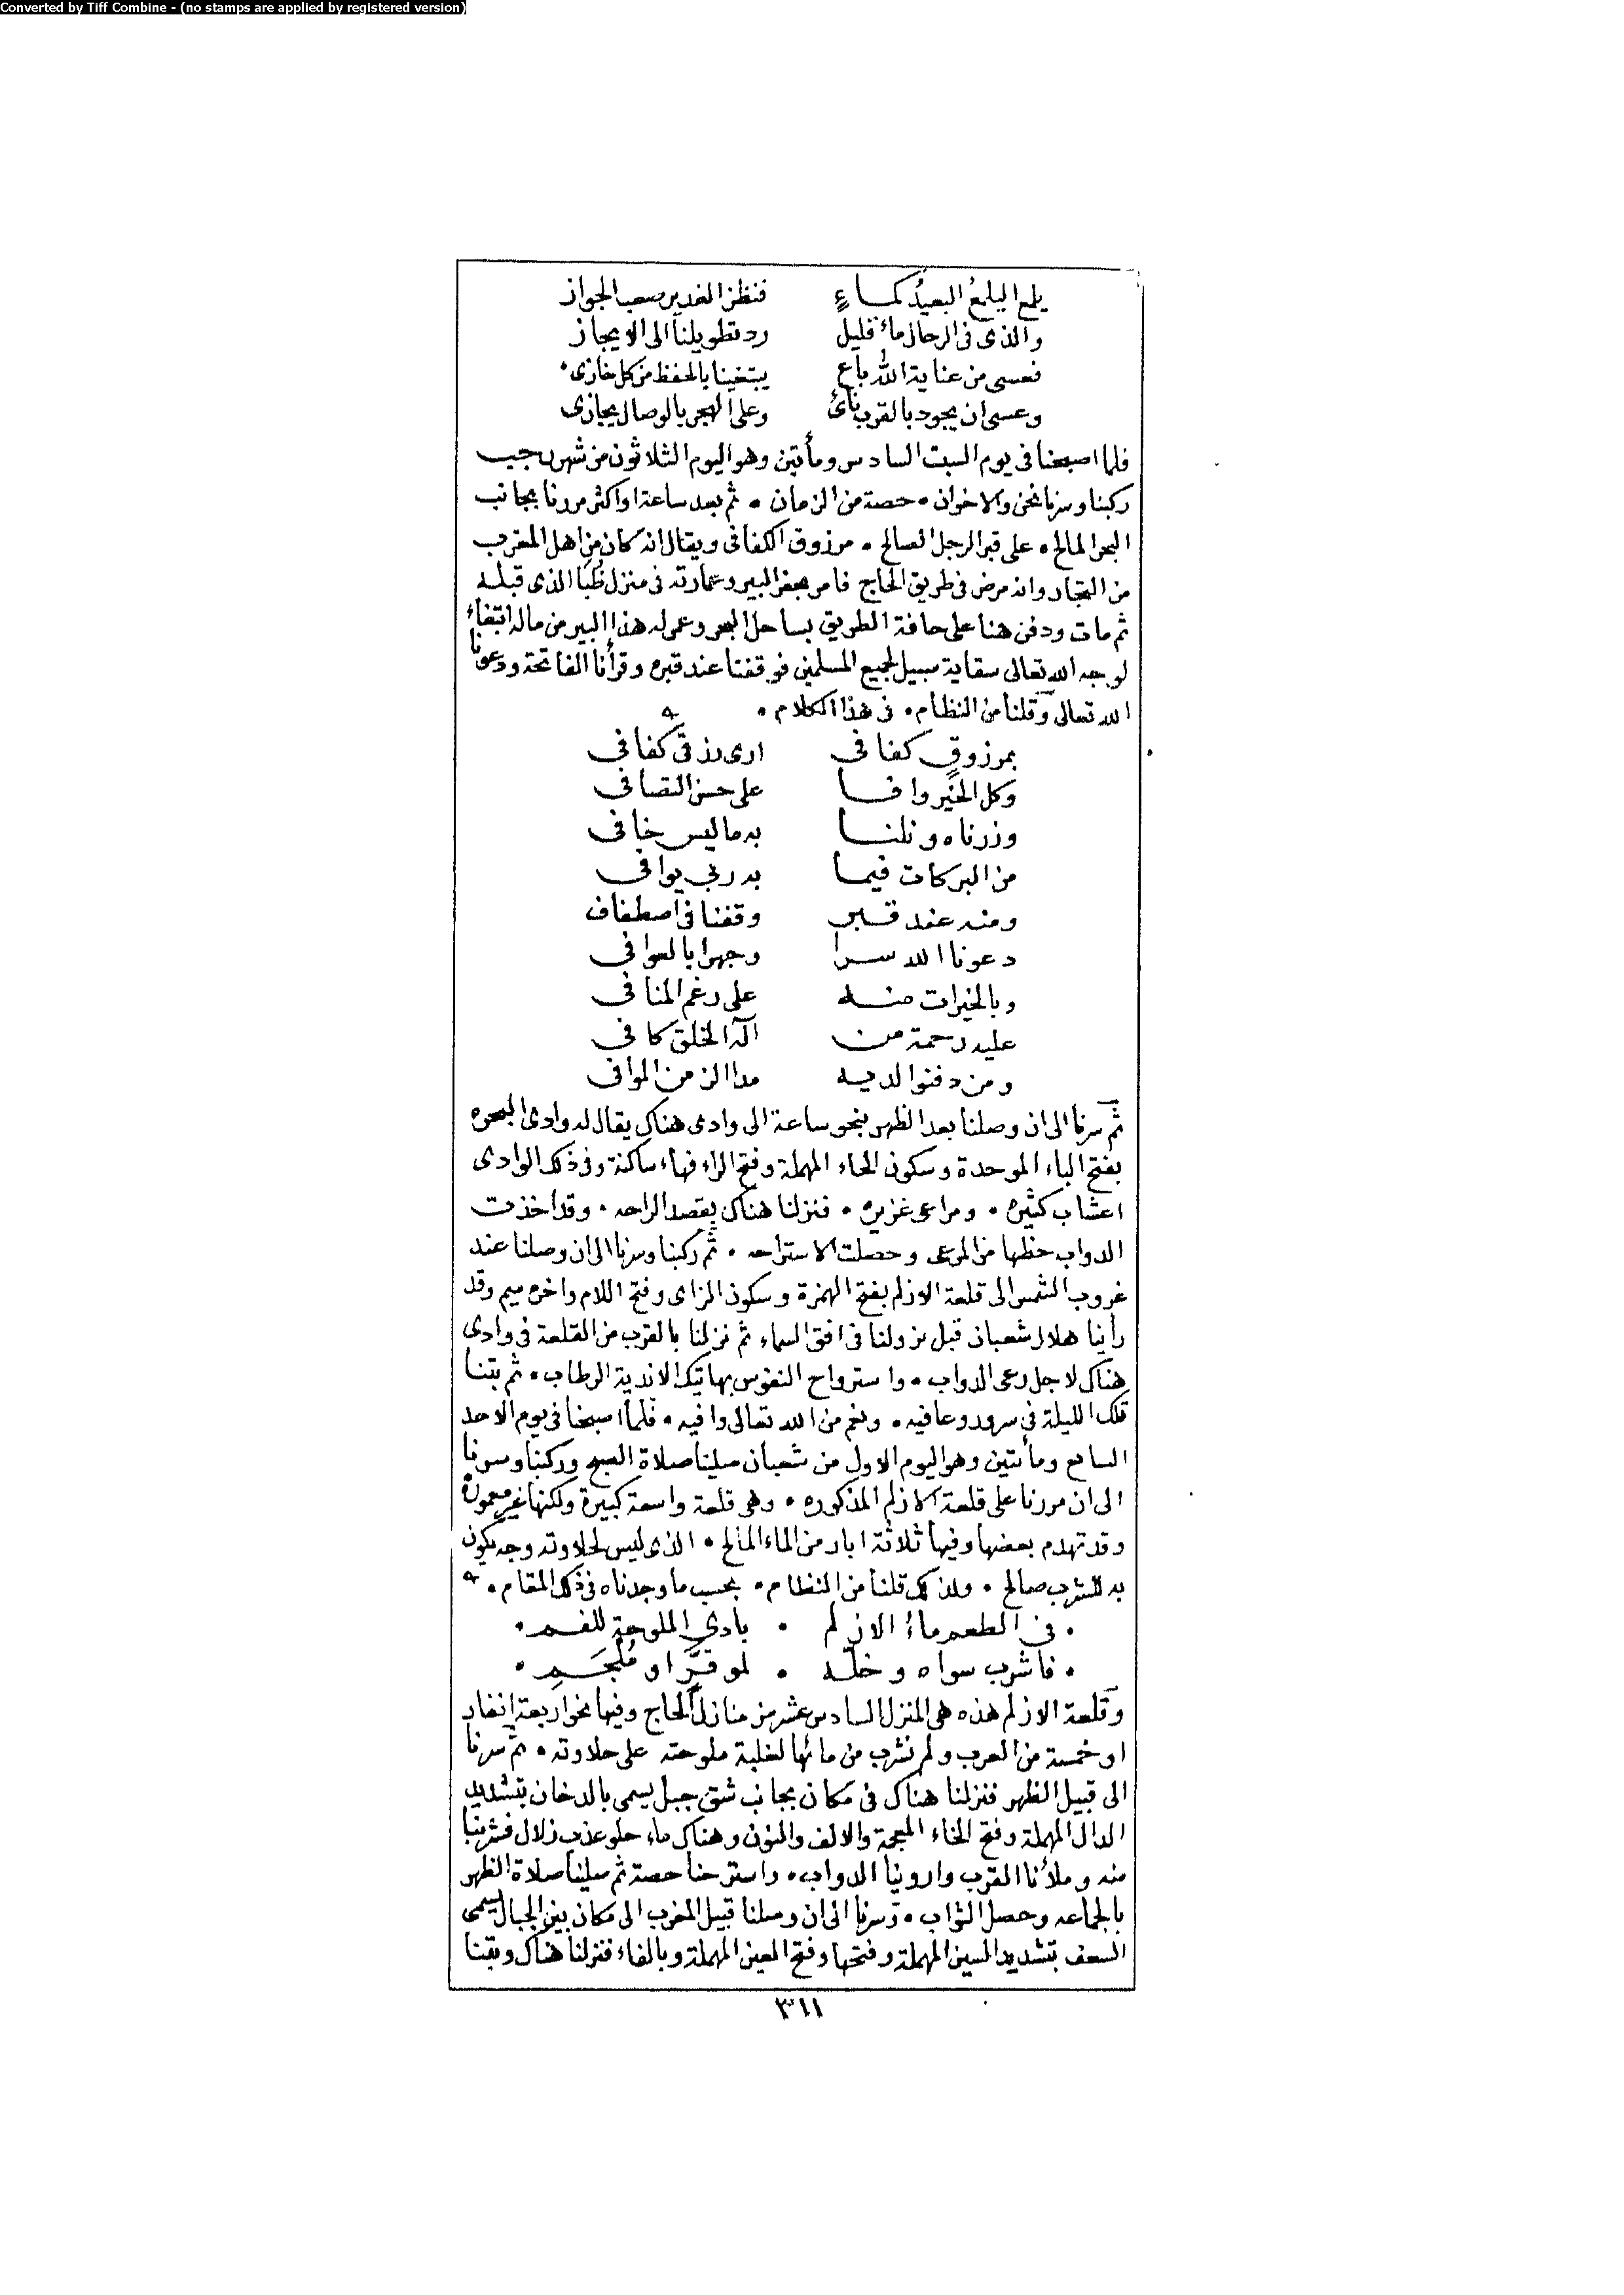 Converted by Tiff Combine - (no stamps are applied by registered version)
يلمع البلمع البعيد كماءٍ فنظن الغدير صعب الجواز
والذى فى الرحال ماء قليل رد تطويلنا الى الايجاز
فعسى من عناية الله باع يبتغينا بالحفظ من كل غازى •
وعسى ان يجود بالقرب نائ وعلى الهجر بالوصال يجازى
فلما اصبحنا فى يوم السبت السادس ومأتين وهو اليوم الثلاثون من شهر رجب
ركبنا وسرنا نحن والاخوان • حصة من الزمان • ثم بعد ساعة او اكثر مررنا بجانب
البحر المالح • على قبر الرجل الصالح • مرزوق الكفافى ويقال انه كان من اهل المغرب
من التجار وانه مرض فى طريق الحاج فامر بحفر البير وعمارته فى منزل ظُبَا الذى قبله
ثم مات ودفن هنا على حافة الطريق بساحل البحر وعمر له هذا البير من ماله ابتغاء
لوجه الله تعالى سقاية سبيل لجميع المسلمين فوقفنا عند قبره وقرأنا الفاتحة ودعونا
الله تعالى وقلنا من النظام • فى هذا الكلام •
بمرزوقٍ كفافى ارى رزقى كفافى
وكل الخير وافا على حسن التصافى
وزرناه ونلنا به ما ليس خافى
من البركات فيما به ربى يوافى
ومنه عند قبر وقفنا فى اصطفاف
دعونا الله سرا وجهرا بالسوافى
وبالخيرات منه على رغم المنافى
عليه رحمة من اله الخلق كافى
ومن دفنوا لديه مدا الزمن الموافى
ثم سرنا الى ان وصلنا بعد الظهر بنحو ساعة الى وادى هناك يقال له وادى البحره
بفتح الباء الموحدة وسكون الحاء المهملة وفتح الراء فهاء ساكنة وفى ذلك الوادى
اعشاب كثيره • ومراعى غزيره • فنزلنا هناك بقصد الراحه • وقد اخذت
الدواب حظها من المرعى وحصلت الاستراحه • ثم ركبنا وسرنا الى ان وصلنا عند
غروب الشمس الى قلعة الازلم بفتح الهمزة وسكون الزاى وفتح اللام واخره ميم وقد
رأينا هلال شعبان قبل نزولنا فى افق السماء ثم نزلنا بالقرب من القلعة فى وادى
هناك لاجل رعى الدواب • واسترواح النفوس بهاتيك الاندية الرطاب • ثم بتنا
تلك الليلة فى سرور وعافيه • ونعم من الله تعالى وافيه • فلما اصبحنا فى يوم الاحد
السابع ومأتين وهو اليوم الاول من شعبان صلينا صلاة الصبح وركبنا وسرنا
الى ان مررنا على قلعة الازلم المذكوره • وهى قلعة واسعة كبيرة ولكنها غير معمورة
وقد تهدم بعضها وفيها ثلاثة ابار من الماء المالح • الذى ليس لحلاوته وجه يكون
به للشرب صالح • ولذلك قلنا من النظام • بحسب ما وجدناه فى ذلك المقام •
• فى الطعم ماءُ الازلم • بادى الملوحة للفم •
• فاشرب سواه وخلّه • لموقرٍ او مُلْجَمِ •
وقلعة الازلم هذه هى المنزل السادس عشر من منازل الحاج وفيها نحو اربعة انفار
او خمسة من العرب ولم نشرب من مائها لغلبة ملوحته على حلاوته • ثم سرنا
الى قبيل الظهر فنزلنا هناك فى مكان بجانب شق جبل يسمى بالدخان بتشديد
الدال المهملة وفتح الخاء المعجمة والالف والنون وهناك ماء حلو عذب زلال فشربنا
منه وملأنا القرب واروينا الدواب • واسترحنا حصة ثم صلينا صلاة الظهر
بالجماعه وحصل الثواب • وسرنا الى ان وصلنا قبيل المغرب الى مكان بين الجبال يسمى
السعف بتشديد السين المهملة وفتحها وفتح العين المهملة وبالفاء فنزلنا هناك وبتنا
٣١١